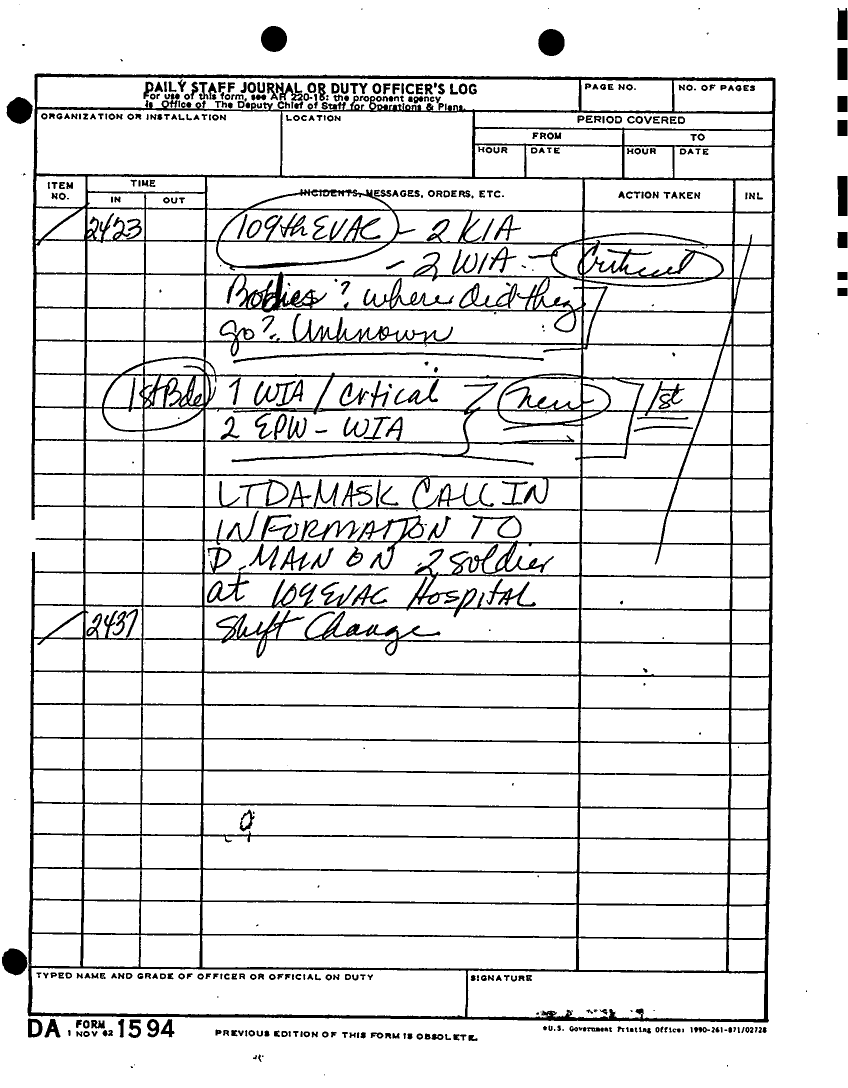 DAILY STAFF JOURNAL OR DUTY OFFICER'S LOG
For use of this form, see AR 220-15; the proponent agency
is Office of The Deputy Chief of Staff for Operations & Plans.
PAGE NO.
NO. OF PAGES
ORGANIZATION OR INSTALLATION
LOCATION
PERIOD COVERED
FROM
TO
HOUR
DATE
HOUR
DATE
ITEM NO.
TIME
IN
OUT
INCIDENTS, MESSAGES, ORDERS, ETC.
ACTION TAKEN
INL
2423 109th EVAC - 2 KIA
- 2 WIA - Critical
Bodies? where did they
go? Unknown
1st Bde 1 WIA / Crtical new 1st
2 EPW - WIA
LT DAMASK CALL IN
INFORMATION TO
D MAIN ON 2 soldier
at 109 EVAC HOSPITAL
2437 Shift Change
TYPED NAME AND GRADE OF OFFICER OR OFFICIAL ON DUTY
SIGNATURE
DA FORM 1 NOV 62 1594
PREVIOUS EDITION OF THIS FORM IS OBSOLETE.
*U.S. Government Printing Office: 1990-261-871/02728